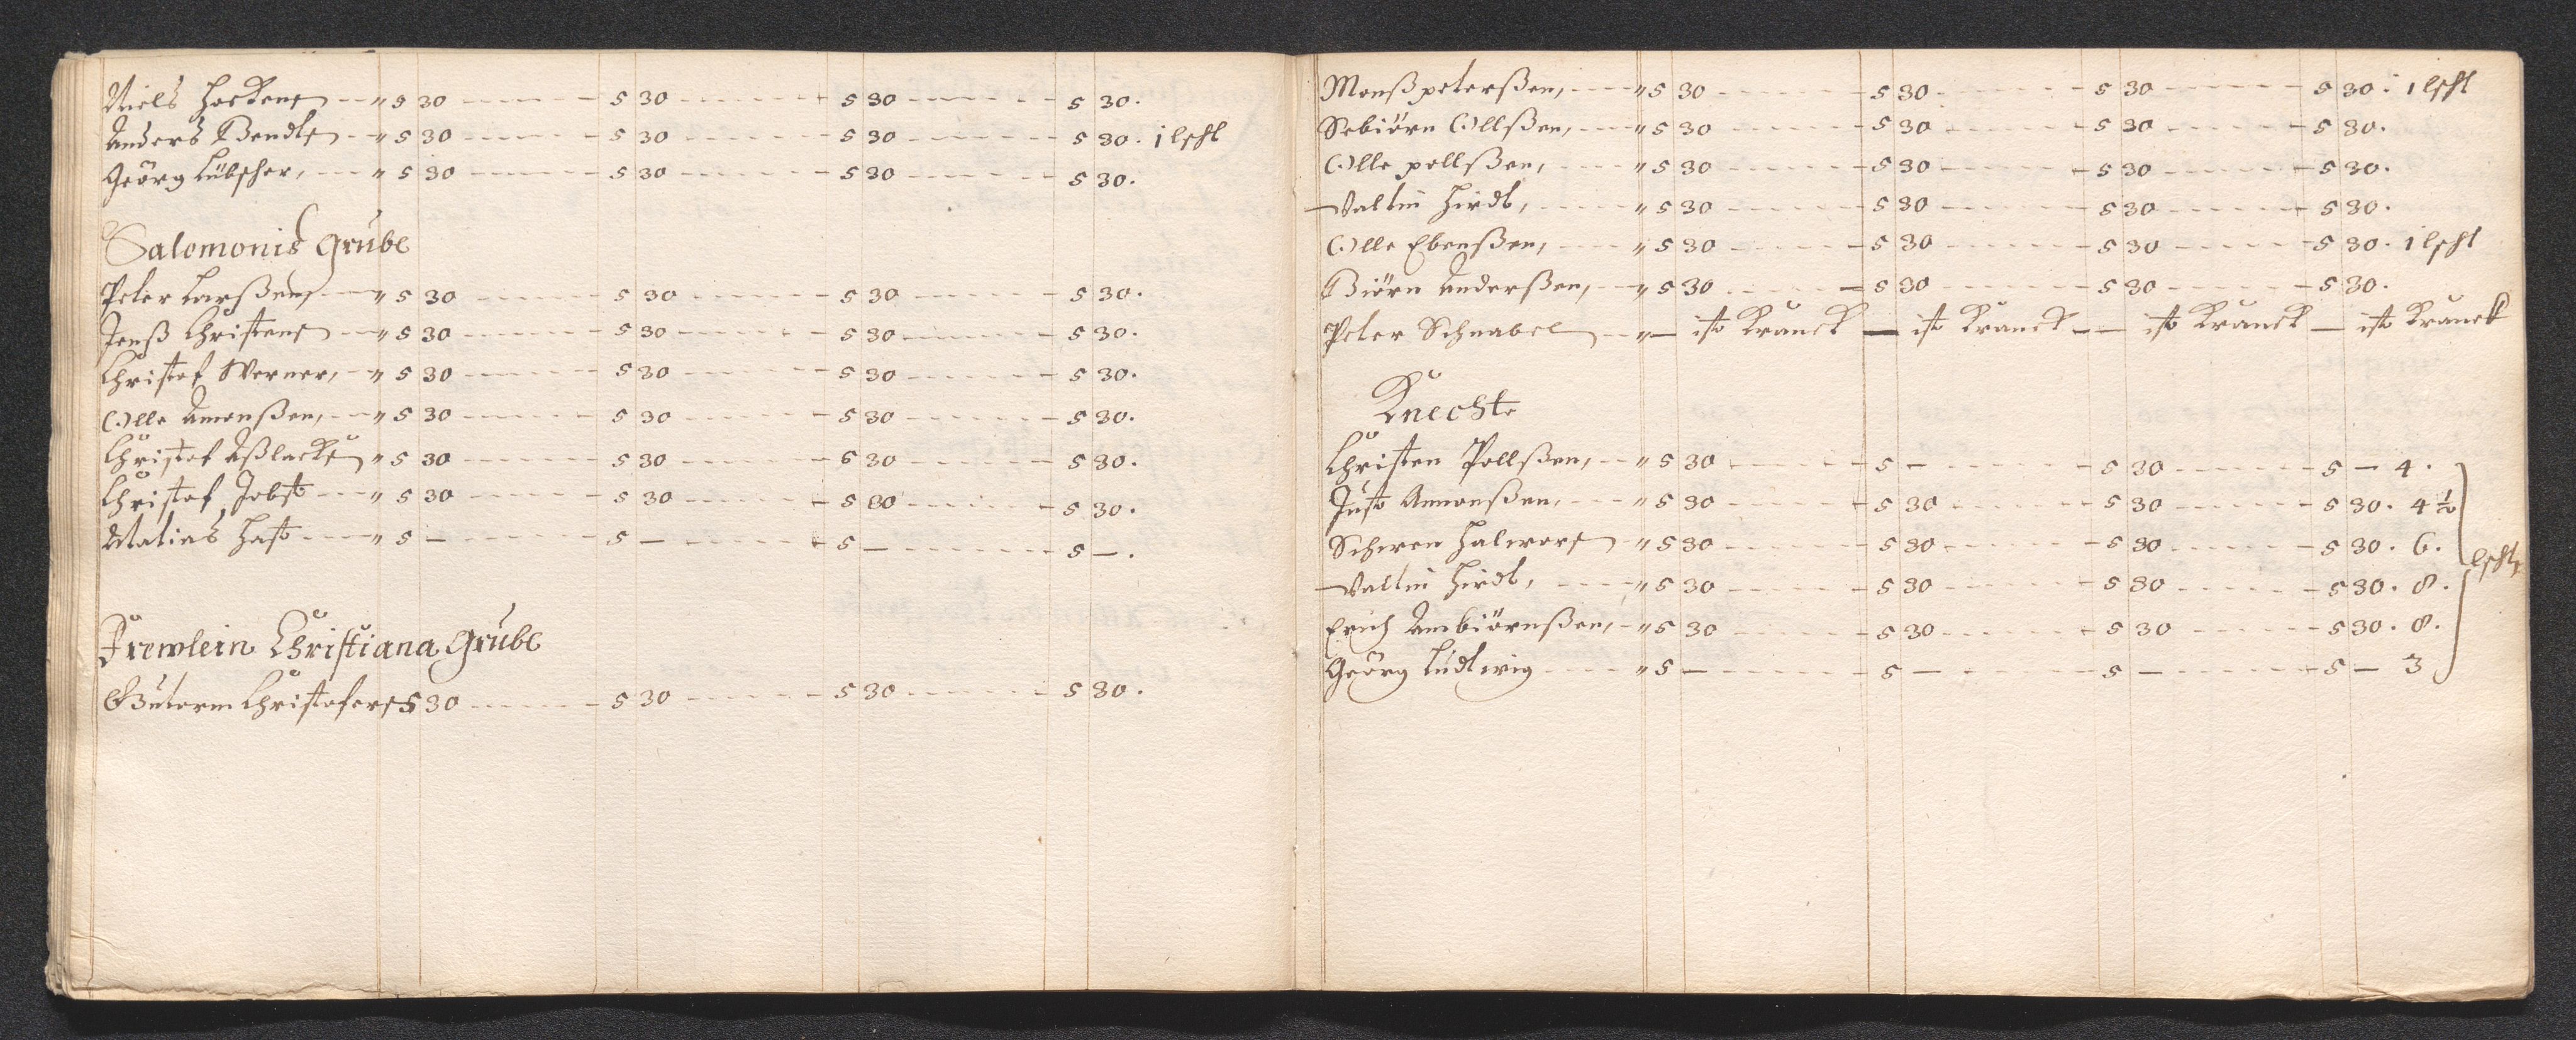 Niels Hockens — " 5 30 — 5 30 — 5 30 — 5 30.
Anders Bendts — " 5 30 — 5 30 — 5 30 — 5 30. 1 lschl
Geörg Lübscher, — " 5 30 — 5 30 — 5 30 — 5 30.
Salomonis Grube
Peter Larßens — " 5 30 — 5 30 — 5 30 — 5 30.
Jenß Christens — " 5 30 — 5 30 — 5 30 — 5 30.
Christof Werner, — " 5 30 — 5 30 — 5 30 — 5 30.
Olle Amonßen, — " 5 30 — 5 30 — 5 30 — 5 30.
Christof Aßlacks " 5 30 — 5 30 — 5 30 — 5 30.
Christof Jobst — " 5 30 — 5 30 — 5 30 — 5 30.
Matias Hast — " 5 — 5 — 5 — 5 —.
Frewlein Christiana Grube
Guttorm Christofers 5 30 — 5 30 — 5 30 — 5 30.
Monß peterßen, — " 5 30 — 5 30 — 5 30 — 5 30. 1 lschl
Sebiörn Ollßen, — " 5 30 — 5 30 — 5 30 — 5 30.
Olle pollßen, — " 5 30 — 5 30 — 5 30 — 5 30.
Valtin Hirdt, — " 5 30 — 5 30 — 5 30 — 5 30.
Olle Ebenßen, — " 5 30 — 5 30 — 5 30 — 5 30. 1 lschl
Biörn Anderßen, — " 5 30 — 5 30 — 5 30 — 5 30.
Peter Schnabel — " — ist Kranck — ist Kranck — ist Kranck — ist Kranck
Knechte
Christen Pollßen, — " 5 30 — 5 — 5 30 — 5 — 4.
Just Amonßen, — " 5 30 — 5 30 — 5 30 — 5 30. 4 ½
Schwen Halwors — " 5 30 — 5 30 — 5 30 — 5 30. 6. lschl
Valtin Hirdt, — " 5 30 — 5 30 — 5 30 — 5 30. 8.
Erich Ambiörnßen, — " 5 30 — 5 30 — 5 30 — 5 30. 8.
Geörg Ludtwig — " 5 — 5 — 5 — 5 — 3